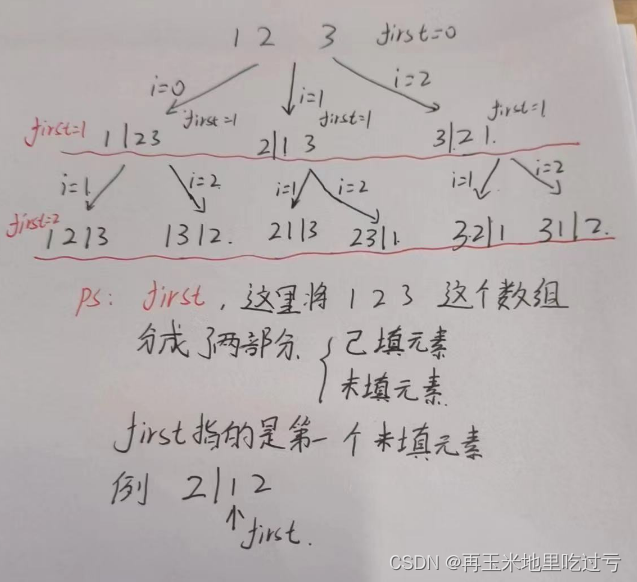 1 2 3 first=0
i=0 i=1 i=2
first=1 1|23 first=1 2|1 3 first=1 3|2 1. first=1
i=1 i=2 i=1 i=2 i=1 i=2
first=2 1 2|3 1 3|2. 2 1|3 2 3|1. 3.2|1 3 1|2.
PS: first, 这里将 1 2 3 这个数组
分成了两部分. { 已填元素
未填元素.
first指的是第一个未填元素
例 2|1 2
↑first.
CSDN @再玉米地里吃过亏